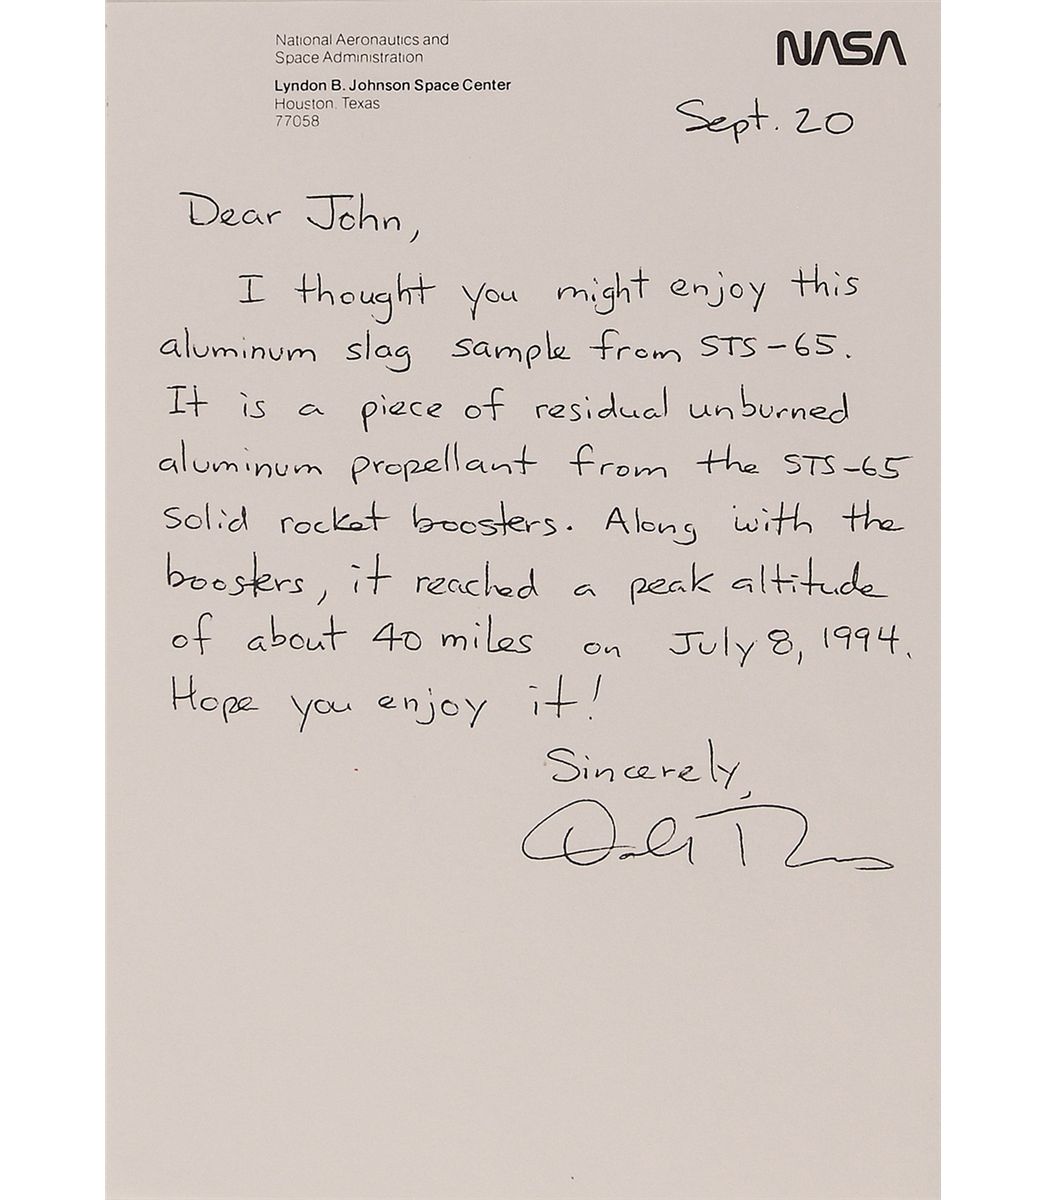 National Aeronautics and
Space Administration
Lyndon B. Johnson Space Center
Houston, Texas
77058
NASA
Sept. 20
Dear John,
I thought you might enjoy this
aluminum slag sample from STS-65.
It is a piece of residual unburned
aluminum propellant from the STS-65
solid rocket boosters. Along with the
boosters, it reached a peak altitude
of about 40 miles on July 8, 1994.
Hope you enjoy it!
Sincerely,